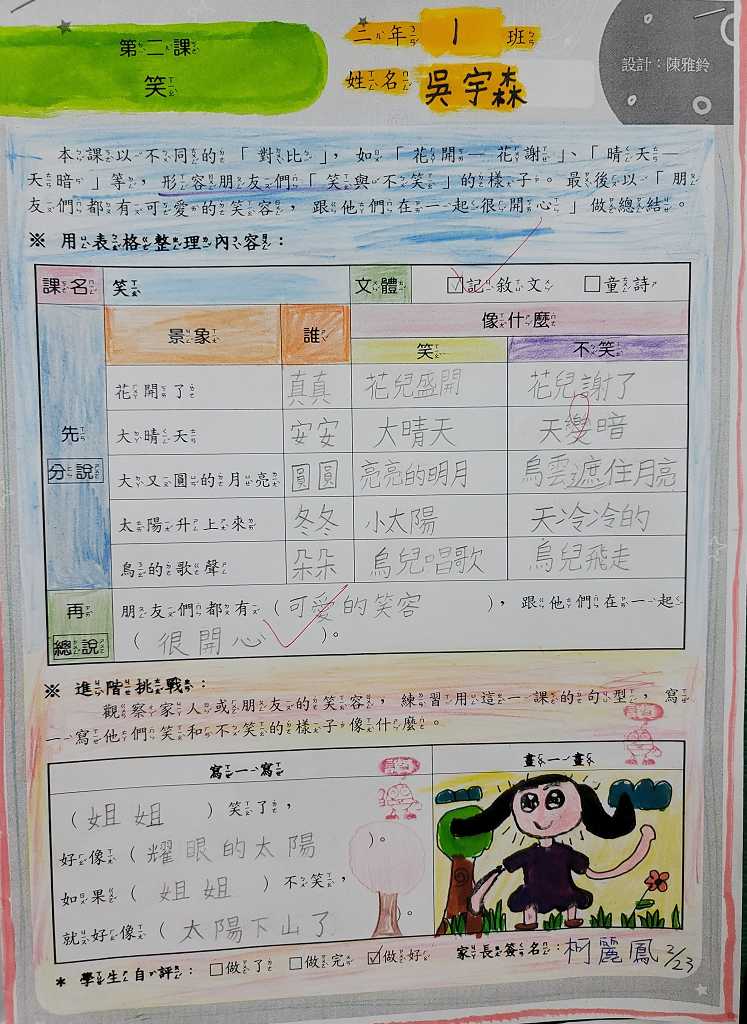 第二課
笑
二年 1 班
姓名 吳宇森
設計:陳雅鈴
本課以不同的「對比」,如「花開—花謝」、「晴天—
天暗」等,形容朋友們「笑與不笑」的樣子。最後以「朋
友們都有可愛的笑容,跟他們在一起很開心」做總結。
※ 用表格整理內容:
課名 笑 文體 ☑記敘文 □童詩
景象 誰 像什麼
笑 不笑
先
分說
花開了 真真 花兒盛開 花兒謝了
大晴天 安安 大晴天 天變暗
大又圓的月亮 圓圓 亮亮的明月 烏雲遮住月亮
太陽升上來 冬冬 小太陽 天冷冷的
鳥的歌聲 朵朵 鳥兒唱歌 鳥兒飛走
再
總說
朋友們都有(可愛的笑容),跟他們在一起
(很開心)。
※ 進階挑戰:
觀察家人或朋友的笑容,練習用這一課的句型,寫
一寫他們笑和不笑的樣子像什麼。
寫一寫 畫一畫
(姐姐)笑了,
好像(耀眼的太陽)。
如果(姐姐)不笑,
就好像(太陽下山了)。
* 學生自評:□做了 □做完 ☑做好 家長簽名:柯麗鳳 2/23